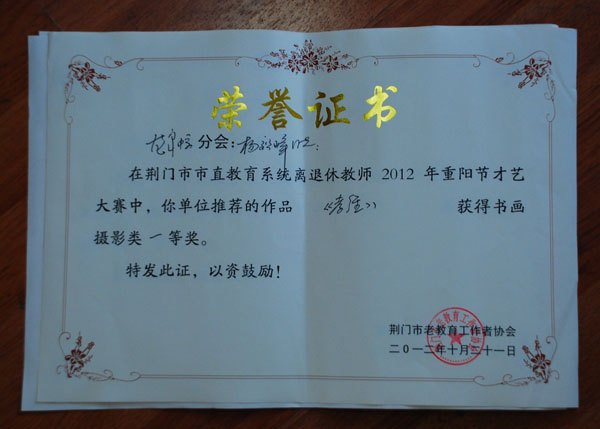 荣誉证书
分会:杨
在荆门市市直教育系统离退休教师 2012 年重阳节才艺
大赛中，你单位推荐的作品 《》 获得书画
摄影类 一 等奖。
特发此证，以资鼓励！
荆门市老教育工作者协会
二0一二年十月二十一日